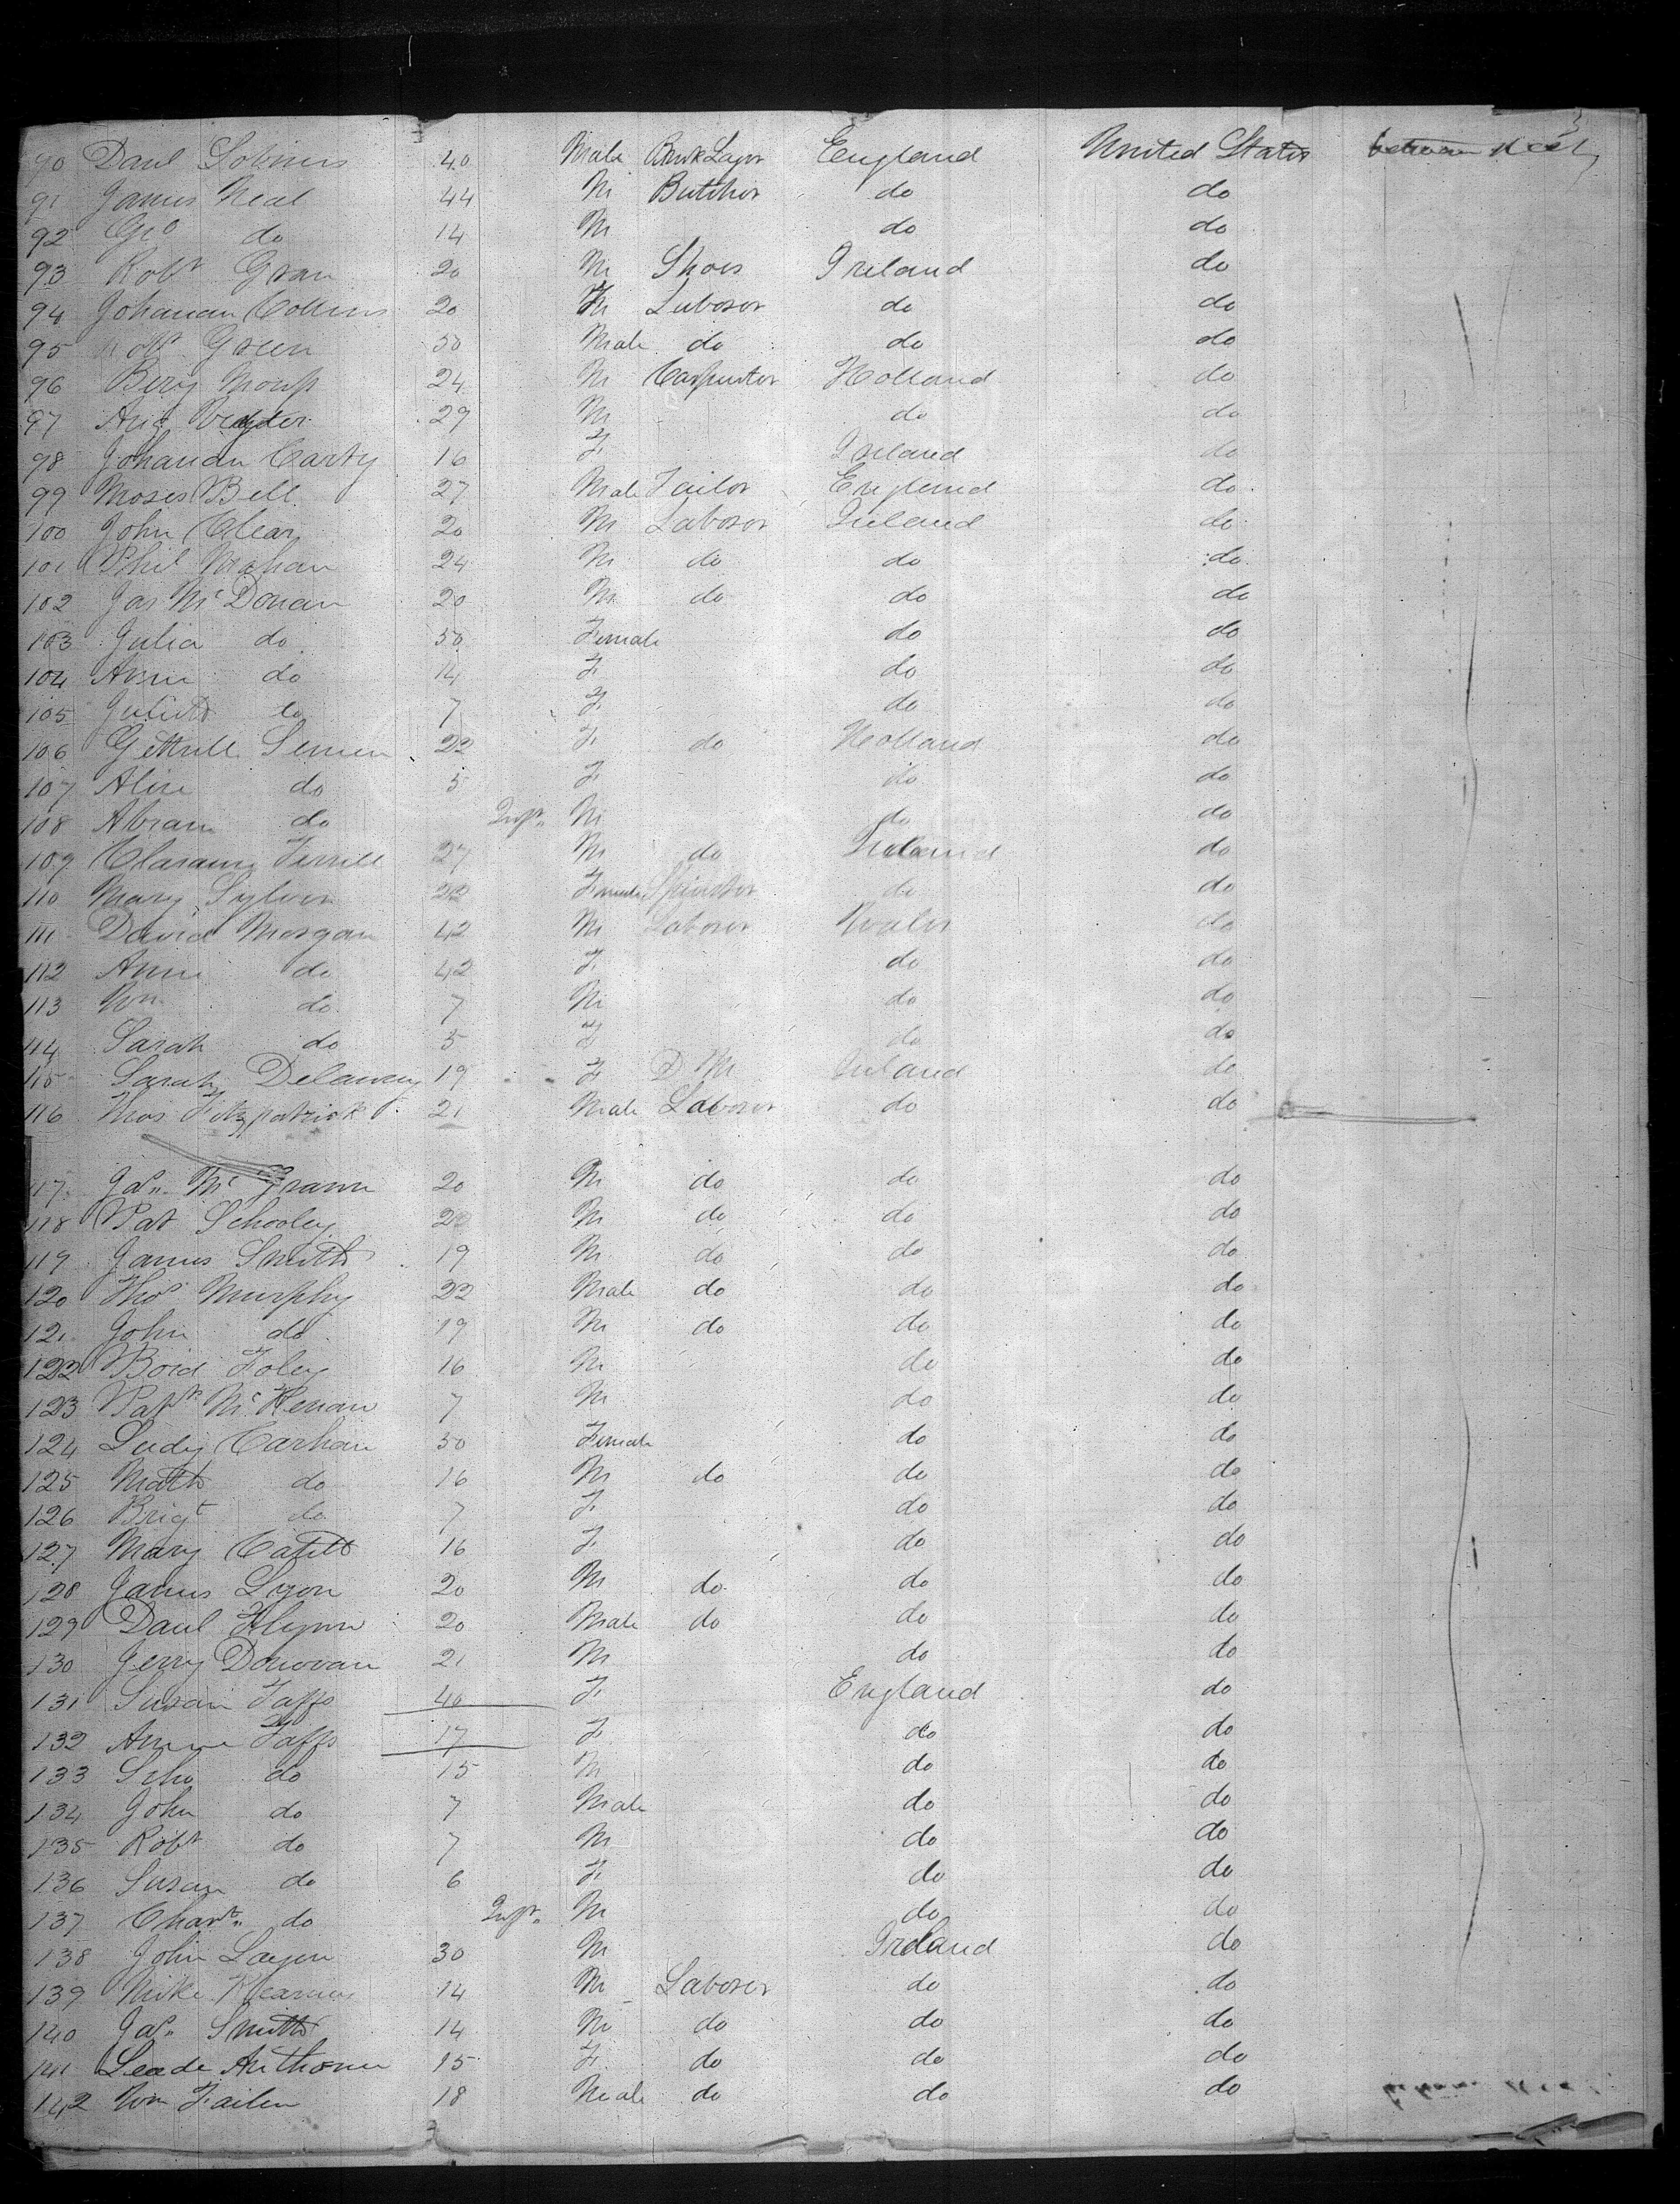 90 Danl 40 Male Brick Layer England United States between decks
91 James Neal 44 M Butcher do do
92 Geo do 14 M do do
93 Robt 20 M Shoes Ireland do
94 Johanan Collins 20 Laborer do do
95 Robt Green 50 Male do do do
96 24 M Carpenter Holland do
97 29 M do do
98 Johanan Carty 16 F Ireland do
99 Moses Bell 27 Male Tailor England do
100 John Clear 20 M Laborer Ireland do
101 Phil Mahan 24 M do do do
102 Jas McDonan 20 M do do do
103 Julia do 50 Female do do
104 Annie do 14 F do do
105 do 7 F do do
106 22 F do Holland do
107 do 5 F do do
108 Abram do Inft. M do do
109 27 M do Ireland do
110 Mary 22 Female Spinster do do
111 David Morgan 42 M Laborer Wales do
112 Annie do 42 F do do
113 Wm do 7 M do do
114 Sarah do 5 F do do
115 Sarah Delaney 19 F D M Ireland do
116 Thos Fitzpatrick 21 Male Laborer do do
117 Jas. 20 M do do do
118 Pat Schooley M do do do
119 James Smith 19 M do do do
120 Thos Murphy 22 Male do do do
121 John do 19 M do do do
122 Foley 16 M do do
123 Patk 7 M do do
124 50 Female do do
125 Math do 16 M do do do
126 Brigt do 7 F do do
127 Mary 16 F do do
128 James Lyon 20 M do do do
129 Danl Flynn 20 Male do do do
130 Jerry Donovan 21 M do do
131 Susan Taffs 40 F England do
132 Annie Taffs 17 F do do
133 do 15 M do do
134 John do 7 Male do do
135 Robt do 7 M do do
136 Susan do 6 F do do
137 do Inft. M do do
138 John 30 M Ireland do
139 Mike 14 M Laborer do do
140 Jas. Smith 14 M do do do
141 15 F do do do
142 Wm 18 Male do do do